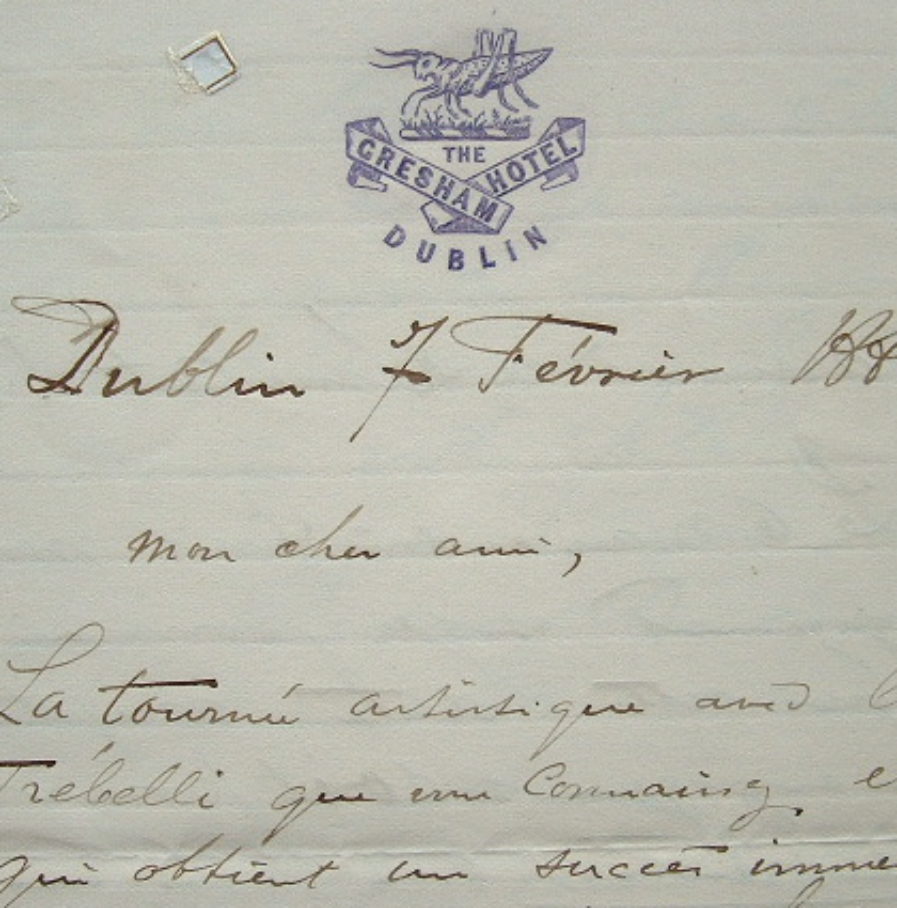 THE
GRESHAM HOTEL
DUBLIN
Dublin 7 Février 188
mon cher ami,
La tournée artistique avec
Trébelli que vous Connaissez, e
qui obtient un succès imme